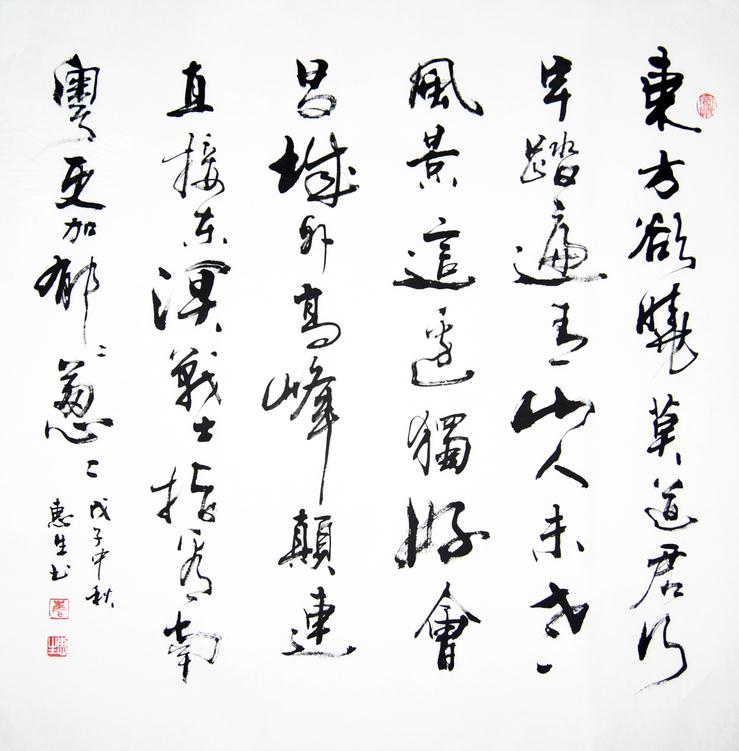 東方欲曉莫道君行
早踏遍青山人未老
風景這邊獨好會
昌城外高峰顛連
直接东溟戰士指看南
粵更加郁〻葱〻
戊子中秋
惠生书